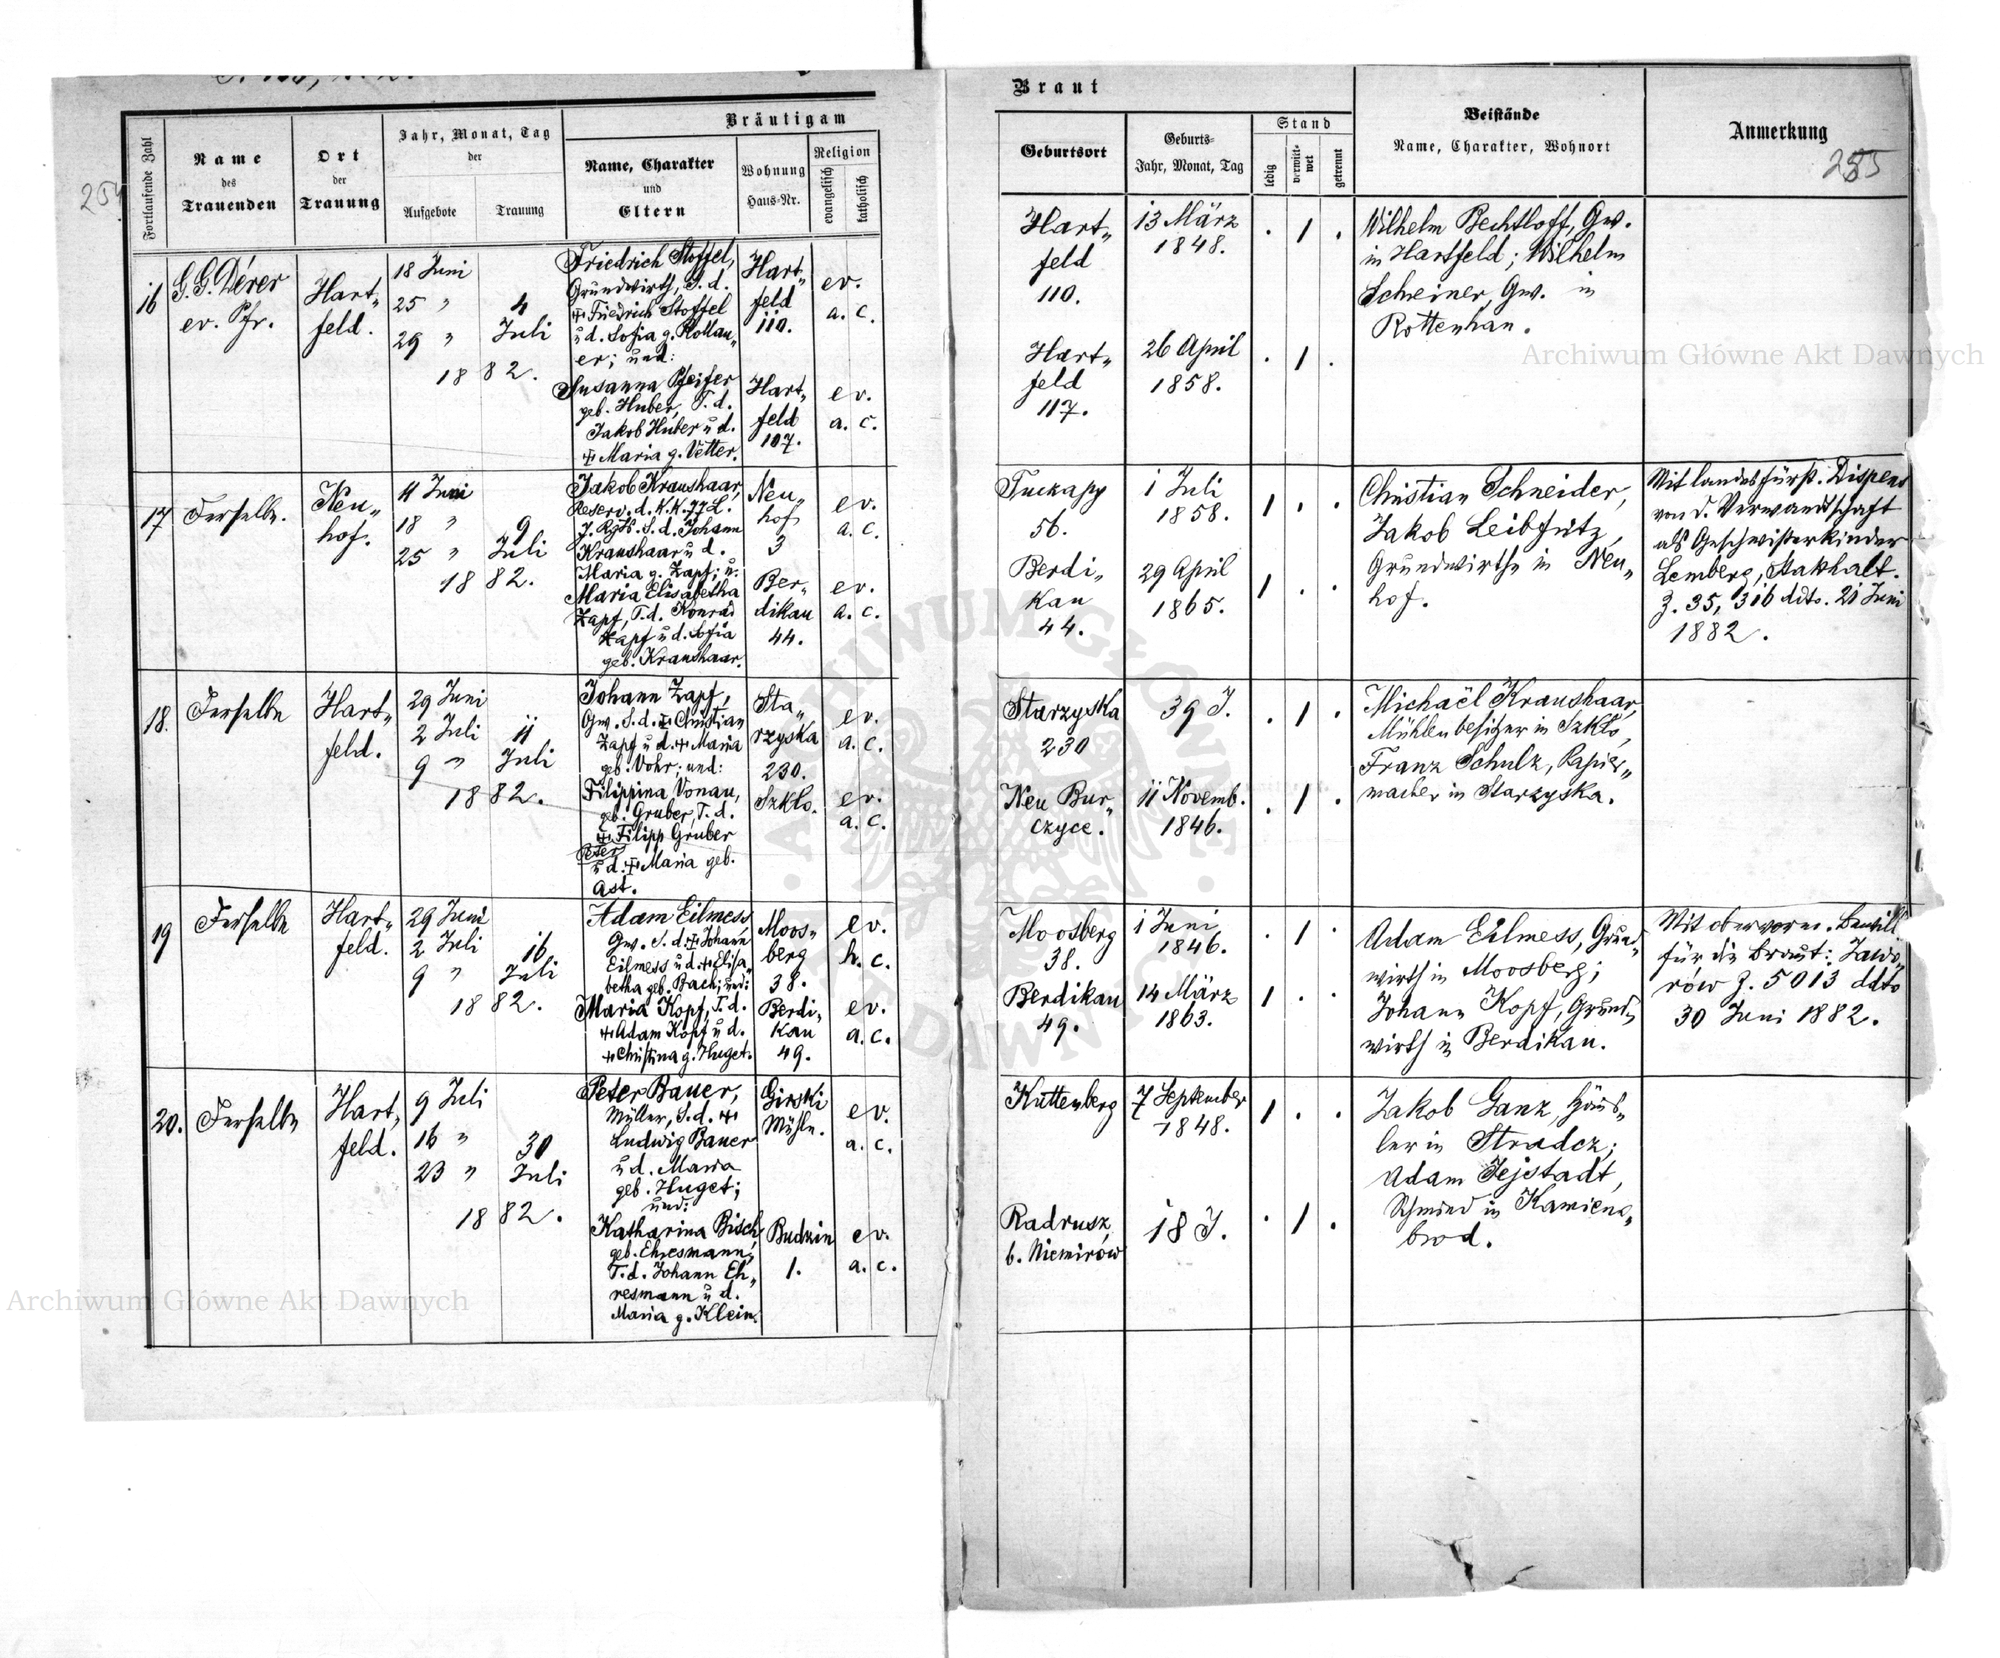 254
Fortlaufende Zahl
Name
des
Trauenden
Ort
der
Trauung
Jahr, Monat, Tag
der
Aufgebote
Trauung
Bräutigam
Name, Charakter
und
Eltern
Wohnung
Haus-Nr.
Religion
evangelisch
katholisch
16
G. G. Dérer
ev. Pfr.
Hart„
feld.
18 Juni
25 "
29 "
4
Juli
1882.
Friedrich Stoffel,
Grundwirth, S. d.
+ Friedrich Stoffel
u d. Sofia g. Rollau„
er; und:
Susanna Pfeifer
geb. Huber, T. d.
Jakob Huber u d.
+ Maria g. Vetter.
Hart„
feld
110.
Hart„
feld
107.
ev.
a. c.
ev.
a. c.
17
Derselbe.
Neu„
hof.
11 Juni
18 "
25 "
9
Juli
1882.
Jakob Kraushaar,
Reserv. d. K. K. 77 L.
J. Rgts. S. d. Johann
Kraushaar u d.
Maria g. Zapf; u:
Maria Elisabetha
Zapf, T. d. Konrad
Zapf u d. Sofia
geb. Kraushaar.
Neu„
hof
3
Ber„
dikau
44.
ev.
a. c.
ev.
a. c.
18.
Derselbe
Hart„
feld.
29 Juni
2 Juli
9 "
11
Juli
1882.
Johann Zapf,
Gw. S. d. + Christian
Zapf u d. + Maria
geb. Vohr; und:
Filippina Vonau,
geb. Gruber, T. d.
+ Filipp Gruber
Peter
u d. + Maria geb.
Ast.
Sta„
rzyska
230.
Szkło.
ev.
a. c.
ev.
a. c.
19
Derselbe
Hart„
feld.
29 Juni
2 Juli
9 "
16
Juli
1882.
Adam Eilmess,
Gw. S. d. + Johann
Eilmess u d. + Elisa„
betha geb. Bach; und:
Maria Kopf, T. d.
+ Adam Kopf u d.
+ Christina g. Huget.
Moos„
berg
38.
Berdi„
kau
49.
ev.
h. c.
ev.
a. c.
20.
Derselbe
Hart„
feld.
9 Juli
16 "
23 "
30
Juli
1882.
Peter Bauer,
Müller, S. d. +
Ludwig Bauer
u d. Maria
geb. Huget;
und:
Katharina Bisch,
geb. Ehresmann,
T. d. Johann Eh„
resmann u d.
Maria g. Klein.
Girski
Mühle.
Budzin
1.
ev.
a. c.
ev.
a. c.
Braut
Geburtsort
Geburts-
Jahr, Monat, Tag
Stand
ledig
verwit-
wet
getrennt
Beistände
Name, Charakter, Wohnort
Anmerkung
255
Hart„
feld
110.
13 März
1848.
. 1 .
Wilhelm Bechtloff, Gw.
in Hartfeld; Wilhelm
Schreiner, Gw. in
Rottenhan.
Hart„
feld
117.
26 April
1858.
. 1 .
Tuckapy
56.
1 Juli
1858.
1 . .
Christian Schneider,
Jakob Leibfritz,
Grundwirthe in Neu„
hof.
Mit landesfürst. Dispens
von d. Verwandtschaft
als Geschwisterkinder
Lemberg, Statthalt.
Z. 35,316 ddto. 21 Juni
1882.
Berdi„
kau
44.
29 April
1865.
1 . .
Starzyska
230
39 J.
. 1 .
Michaël Kraushaar,
Mühlenbesitzer in Szkło,
Franz Schulz, Papier„
macher in Starzyska.
Neu Bur„
czyce.
11 Novemb.
1846.
. 1 .
Moosberg
38.
1 Juni
1846.
. 1 .
Adam Eilmess, Grund„
wirth in Moosberg;
Johann Kopf, Grund„
wirth in Berdikau.
Mit obervorm. Bewill.
für die Braut: Jawo„
rów Z. 5013 ddto
30 Juni 1882.
Berdikau
49.
14 März
1863.
1 . .
Kuttenberg
7 September
1848.
1 . .
Jakob Ganz, Häus„
ler in Stradcz;
Adam Jejstadt,
Schmied in Kamieno„
brod.
Radrusz
b. Niemirów
18 J.
. 1 .
Archiwum Główne Akt Dawnych
Archiwum Główne Akt Dawnych
ARCHIWUM GŁÓWNE AKT DAWNYCH